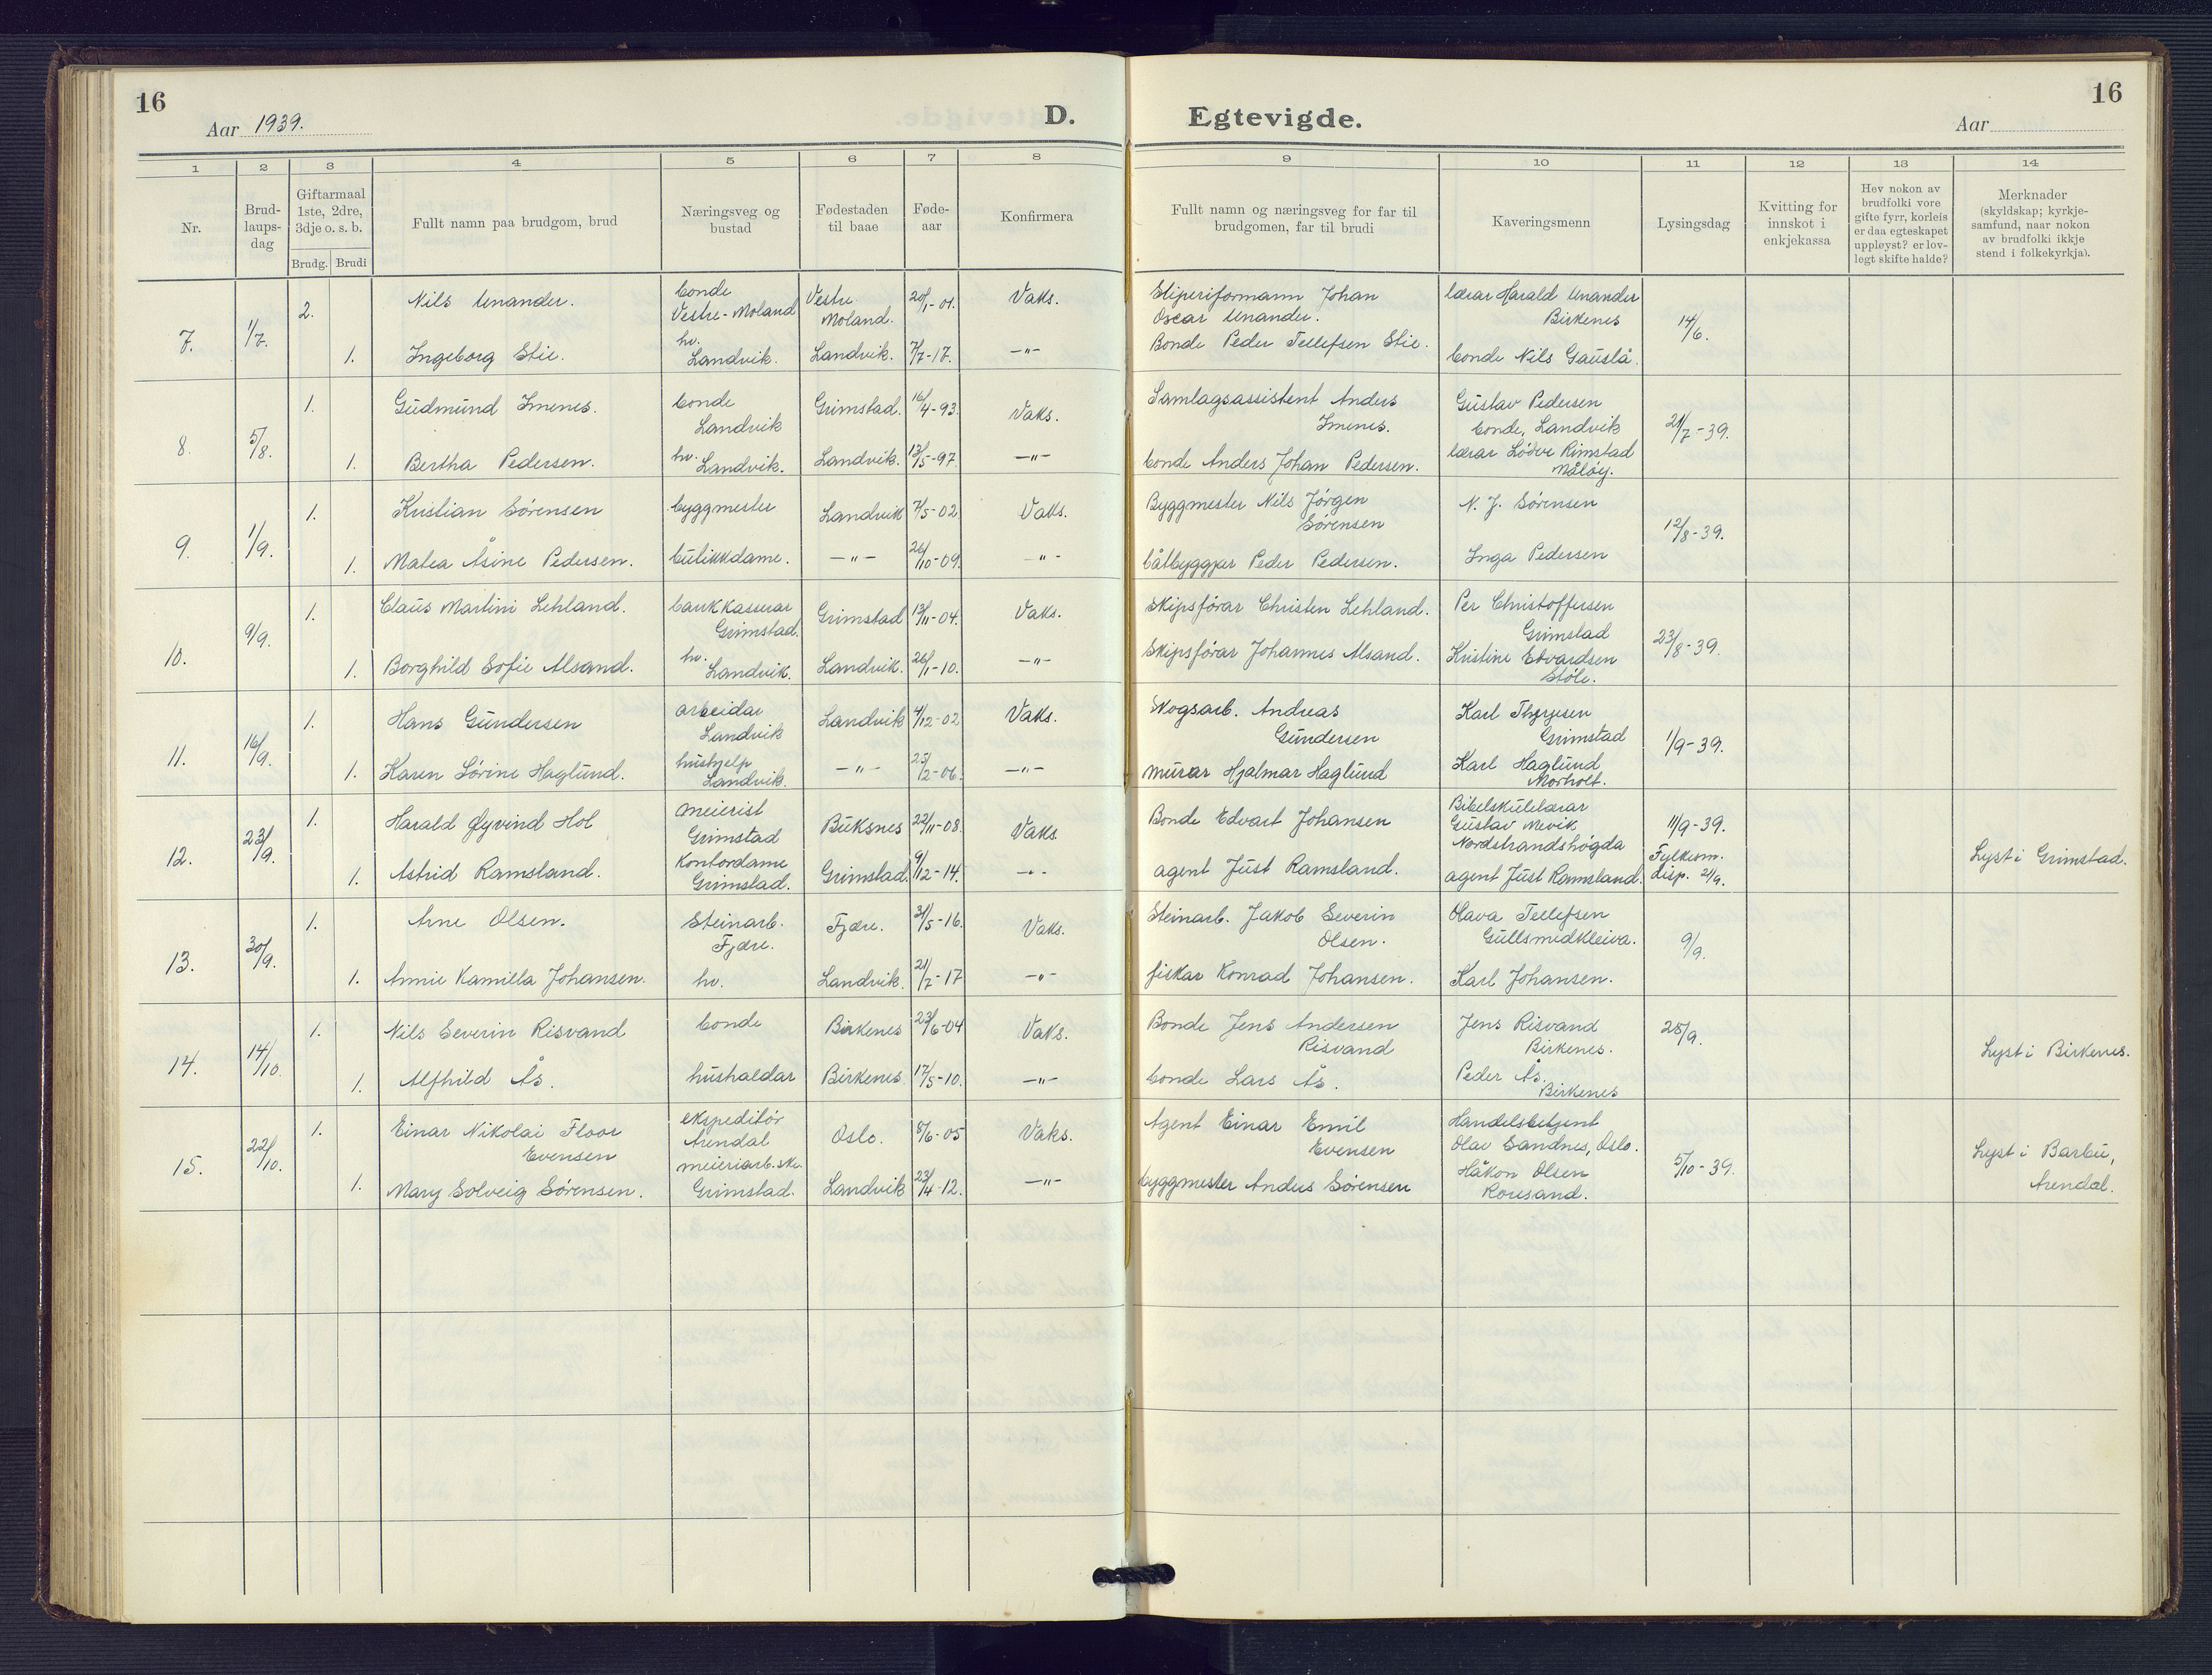 16
Aar 1939.
D.
Egtevigde.
Aar
16
1 2 3 4 5 6 7 8 9 10 11 12 13 14
Nr.
Brud-
laups-
dag
Giftarmaal
1ste, 2dre,
3dje o. s. b.
Brudg. Brudi
Fullt namn paa brudgom, brud
Næringsveg og
bustad
Fødestaden
til baae
Føde-
aar
Konfirmera
Fullt namn og næringsveg for far til
brudgomen, far til brudi
Kaveringsmenn
Lysingsdag
Kvitting for
innskot i
enkjekassa
Hev nokon av
brudfolki vore
gifte fyrr, korleis
er daa egteskapet
uppløyst? er lov-
legt skifte halde?
Merknader
(skyldskap; kyrkje-
samfund, naar nokon
av brudfolki ikkje
stend i folkekyrkja).
7. 1/7.
2. Nils Unander. bonde Vestre-Moland Vestre Moland. 20/1-01. Vaks. Sliperiformann Johan Oscar Unander. lærar Harald Unander Birkenes 14/6.
1. Ingeborg Stie. hv. Landvik. Landvik. 7/7-17. -"- Bonde Peder Tellefsen Stie. bonde Nils Gauslå.
8. 5/8.
1. Gudmund Imenes. bonde Landvik Grimstad. 16/4-93. Vaks. Samlagsassistent Anders Imenes. Gustav Pedersen bonde, Landvik 21/7-39.
1. Bertha Pedersen. hv. Landvik. Landvik. 13/5-97. -"- bonde Anders Johan Pedersen. lærar Rimstad Måløy.
9. 1/9.
1. Kristian Sørensen byggmester Landvik 7/5-02 Vaks. Byggmester Nils Jørgen Sørensen N. J. Sørensen 12/8-39.
1. Matea Åsine Pedersen. butikkdame. -"- 26/10-09. -"- båtbyggjar Peder Pedersen. Inga Pedersen
10. 9/9.
1. Claus Martini Lehland. bankkasserar Grimstad. Grimstad 13/11-04. Vaks. Skipsførar Christen Lehland. Per Christoffersen Grimstad 23/8-39.
1. Borghild Sofie Alsand. hv. Landvik. Landvik. 26/1-10. -"- Skipsførar Johannes Alsand. Kristine Edvardsen Støle.
11. 16/9.
1. Hans Gundersen arbeidar Landvik Landvik 4/12-02 Vaks. Skogsarb. Andreas Gundersen Karl Grimstad 1/9-39.
1. Karen Sørine Haglund. hushjelp Landvik. -"- 25/2-06. -"- murar Hjalmar Haglund Karl Haglund Morholt.
12. 23/9.
1. Harald Øyvind Hol meierist Grimstad Buksnes 22/11-08. Vaks. Bonde Edvart Johansen Bibelskulelærar Gustav Mevik Nordstrandshøgda 11/9-39. Lyst i Grimstad.
1. Astrid Ramsland. Kontordame Grimstad. Grimstad. 9/12-14. -"- agent Just Ramsland. agent Just Ramsland. Fylkesm. disp. 21/9.
13. 30/9.
1. Arne Olsen. Steinarb. Fjære. Fjære. 31/5-16. Vaks. Steinarb. Jakob Severin Olsen. Olava Tellefsen Gullsmedkleiva. 9/9.
1. Annie Kamilla Johansen. hv. Landvik. 21/7-17 -"- fiskar Konrad Johansen. Karl Johansen.
14. 14/10.
1. Nils Severin Risvand bonde Birkenes 23/6-04 Vaks. Bonde Jens Andersen Risvand Jens Risvand Birkenes. 28/9. Lyst i Birkenes.
1. Alfhild Ås. hushaldar Birkenes. 17/5-10. -"- bonde Lars Ås. Peder Ås. Birkenes
15. 22/10.
1. Einar Nikolai Floor Evensen ekspeditør Arendal Oslo. 8/6-05 Vaks. Agent Einar Emil Evensen Handelsbetjent Olav Sandnes, Oslo. 5/10-39. Lyst i Barbu, Arendal.
1. Mary Solveig Sørensen. meieriarb.ske. Grimstad. Landvik 23/4-12. -"- byggmester Anders Sørensen Håkon Olsen Roresand.